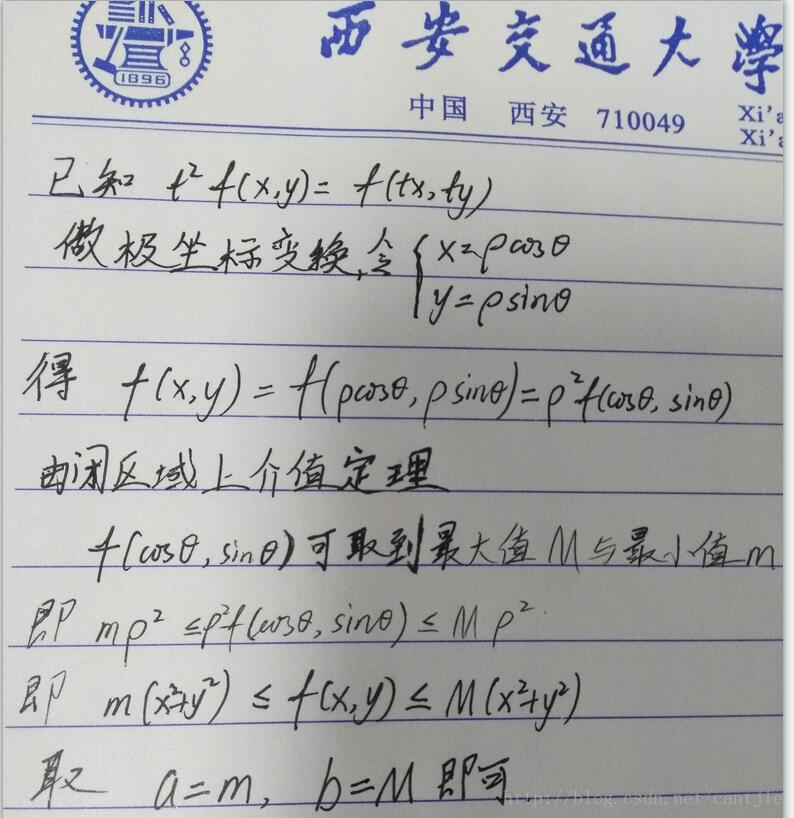 1896
西安交通大學
中国 西安 710049
Xi'a
Xi'a
已知 t²f(x,y)= f(tx,ty)
做极坐标变换,令 { x=ρcosθ
y=ρsinθ
得 f(x,y) = f(ρcosθ, ρsinθ)=ρ²f(cosθ, sinθ)
由闭区域上介值定理
f(cosθ, sinθ)可取到最大值M与最小值m
即 mρ² ≤ρ²f(cosθ, sinθ) ≤ Mρ²
即 m(x²+y²) ≤ f(x,y) ≤ M(x²+y²)
取 a=m, b=M 即可
http://blog.csdn.net/cantjie